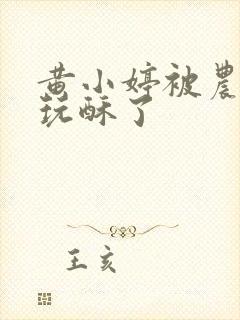 黄小婷被農
玩酥了
王亥